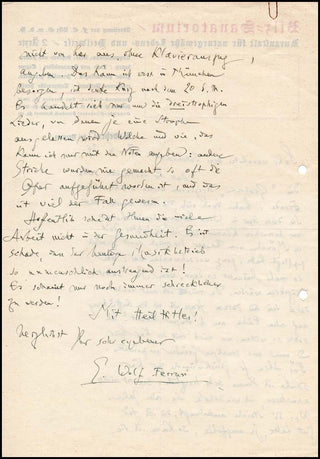 nicht von hier aus, ohne Klavierauszug,
angeben. Das kann ich erst in München
besorgen, ich denke kurz nach dem 20 d. M.
Es handelt sich nur um die dreistrophigen
Lieder, von denen je eine Strophe
ausgelassen wird. Welche und wie, das
kann ich nur mit den Noten angeben: andere
Striche wurden nie gemacht, so oft die
Oper aufgeführt worden ist, und das
ist viel der Fall gewesen.
Hoffentlich schadet Ihnen die viele
Arbeit nicht in der Gesundheit. Es ist
schade, dass der heutige Musikbetrieb
so unmenschlich anstrengend ist!
Es scheint nur noch immer schrecklicher
zu werden!
Mit Heil Hitler!
herzlichst Ihr sehr ergebener
E. Wolf Ferrari